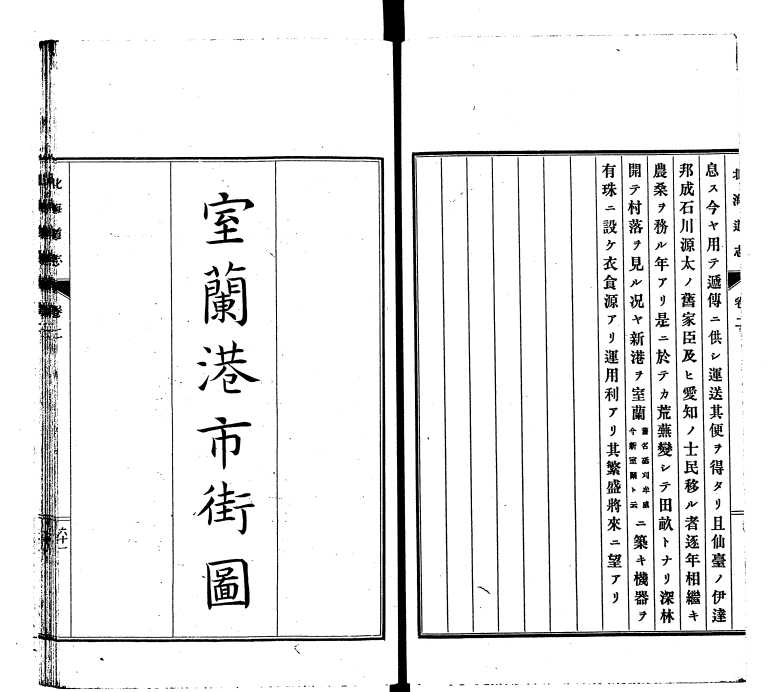 北海道志 卷二
息ス今ヤ用テ遞傳ニ供シ運送其便ヲ得タリ且仙臺ノ伊達
邦成石川源太ノ舊家臣及ヒ愛知ノ士民移ル者逐年相繼キ
農桑ヲ務ル年アリ是ニ於テカ荒蕪變シテ田畝トナリ深林
開テ村落ヲ見ル况ヤ新港ヲ室蘭
今新室蘭ト云
ニ築キ機器ヲ
有珠ニ設ケ衣食源アリ運用利アリ其繁盛將來ニ望アリ
室蘭港市街圖
北海道志 卷二
六十一